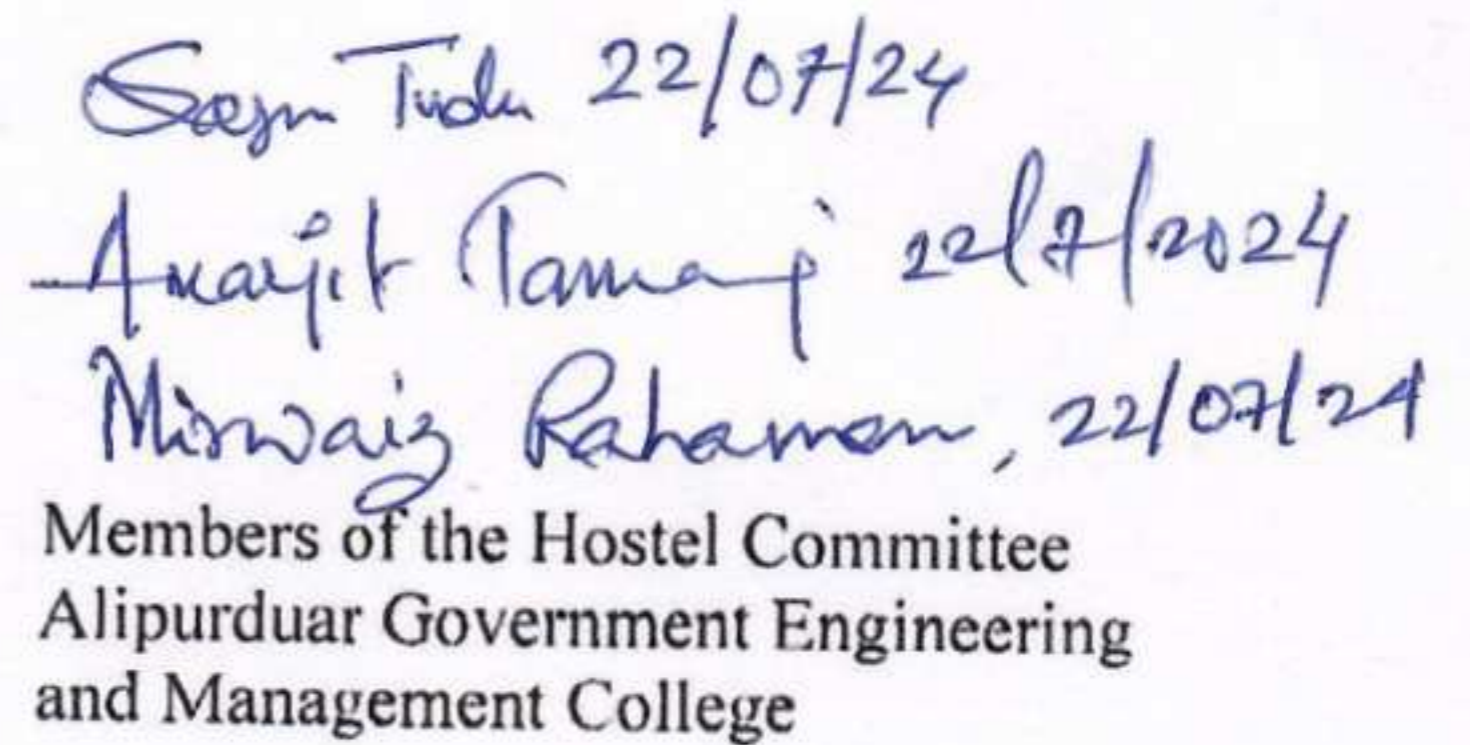 Tudu 22/07/24
Amarjit Tamang 22/7/2024
Mirwaiz Rahaman, 22/07/24
Members of the Hostel Committee
Alipurduar Government Engineering
and Management College